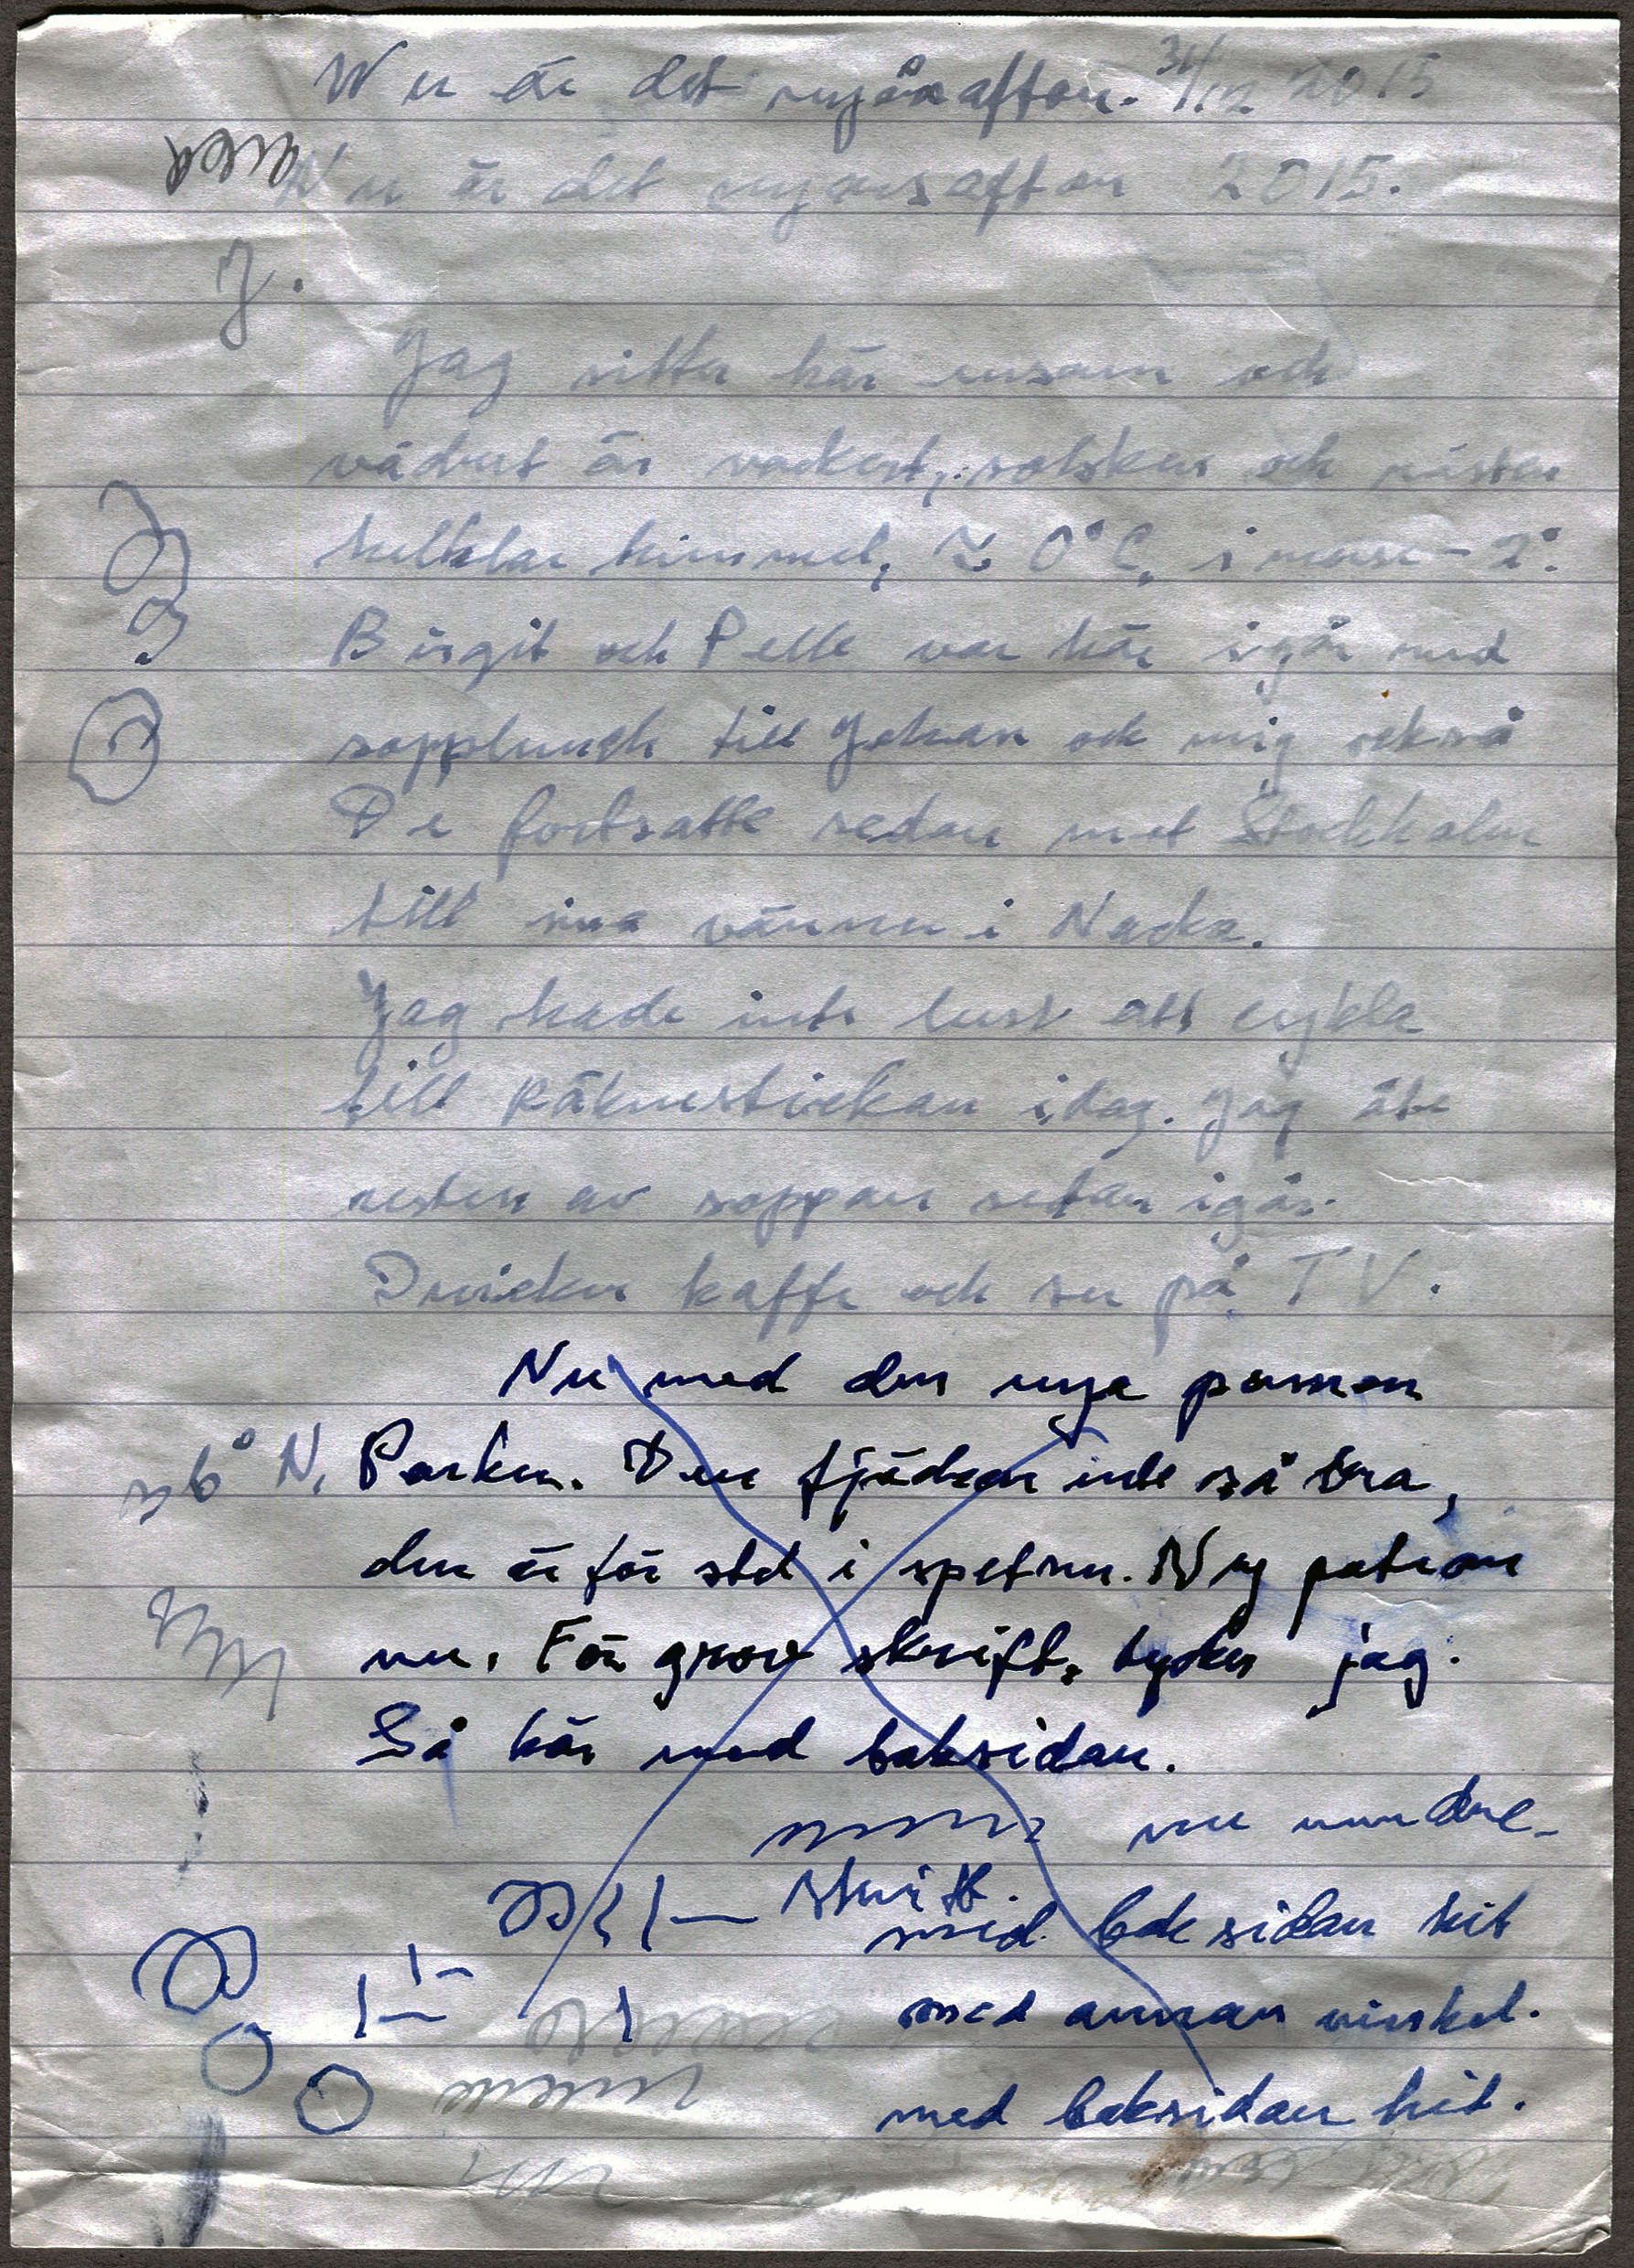 Nu är det nyårsafton. 31/12 2015
Nu är det nyårsafton 2015.
J.
Jag sitter här ensam och
vädret är vackert, solsken och nästan
helklar himmel, ≈ 0°C, i morse -2°.
Birgit och Pelle var här igår med
sopplunch till Johan och mig också
De fortsatte sedan mot Stockholm
till sina vänner i Nacka.
Jag hade inte lust att cykla
till Räknestickan idag. Jag äter
resten av soppan sedan igår.
Dricker kaffe och ser på TV.
Nu med den nya pennan
N, Parker. Den fjädrar inte så bra,
den är för stel i spetsen. Ny patron
nu. För grov skrift, tycker jag.
Så här med baksidan.
nu
skrift.
med baksidan hit
med annan vinkel.
med baksidan hit.